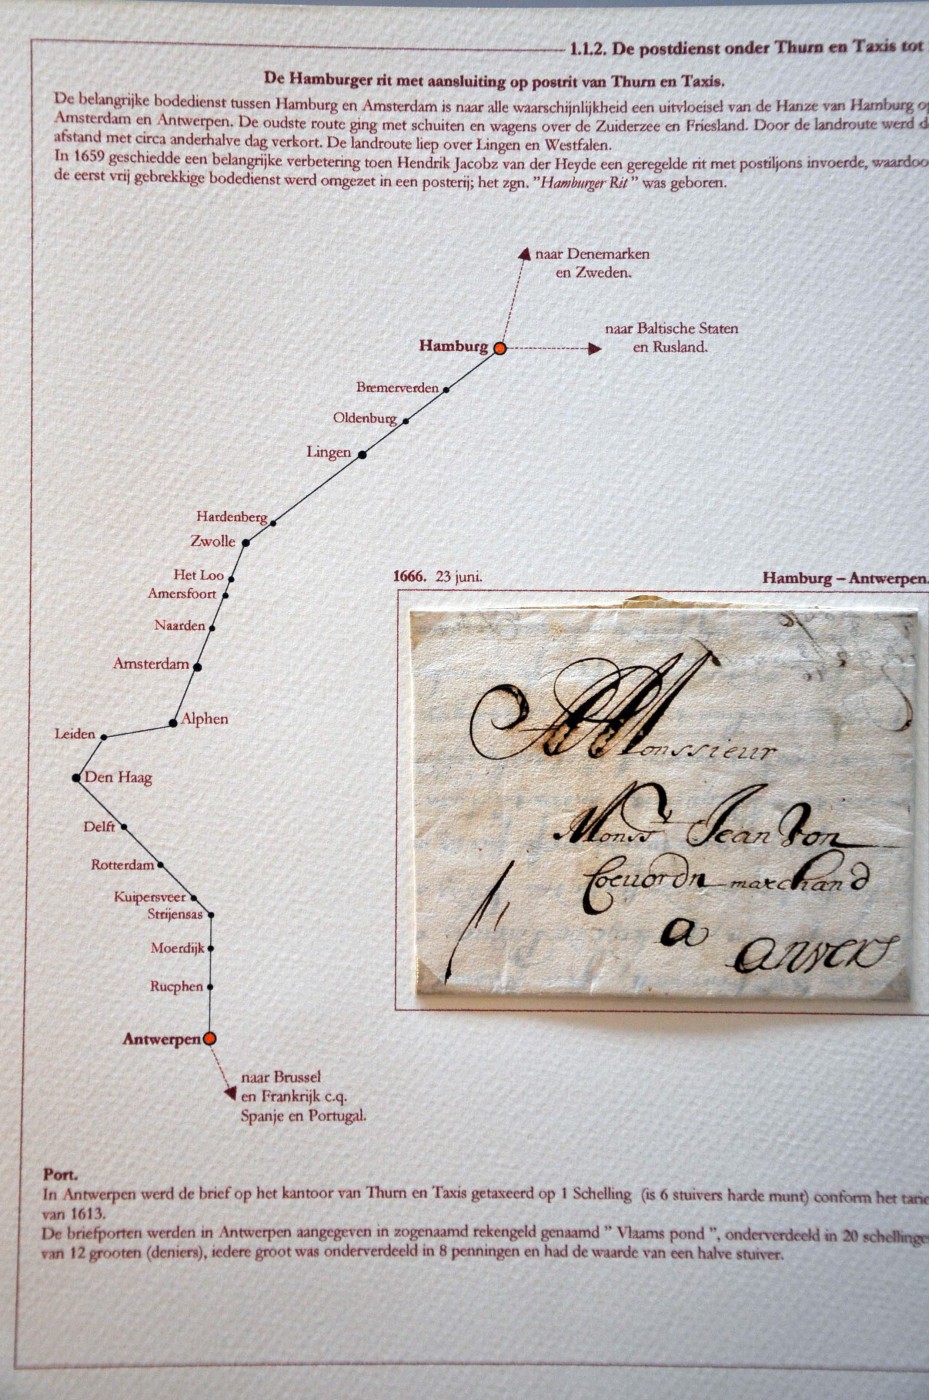 1.1.2. De postdienst onder Thurn en Taxis tot
De Hamburger rit met aansluiting op postrit van Thurn en Taxis.
De belangrijke bodedienst tussen Hamburg en Amsterdam is naar alle waarschijnlijkheid een uitvloeisel van de Hanze van Hamburg op
Amsterdam en Antwerpen. De oudste route ging met schuiten en wagens over de Zuiderzee en Friesland. Door de landroute werd d
afstand met circa anderhalve dag verkort. De landroute liep over Lingen en Westfalen.
In 1659 geschiedde een belangrijke verbetering toen Hendrik Jacobz van der Heyde een geregelde rit met postiljons invoerde, waardoo
de eerst vrij gebrekkige bodedienst werd omgezet in een posterij; het zgn. "Hamburger Rit" was geboren.
naar Denemarken
en Zweden.
naar Baltische Staten
en Rusland.
Hamburg
Bremerverden
Oldenburg
Lingen
Hardenberg
Zwolle
Het Loo
Amersfoort
Naarden
Amsterdam
Alphen
Leiden
Den Haag
Delft
Rotterdam
Kuipersveer
Strijensas
Moerdijk
Rucphen
Antwerpen
naar Brussel
en Frankrijk c.q.
Spanje en Portugal.
1666. 23 juni.
Hamburg – Antwerpen.
A Monssieur
Monsr Jean Von
Coeuordn marchand
a
anvers
Port.
In Antwerpen werd de brief op het kantoor van Thurn en Taxis getaxeerd op 1 Schelling (is 6 stuivers harde munt) conform het tarie
van 1613.
De briefporten werden in Antwerpen aangegeven in zogenaamd rekengeld genaamd " Vlaams pond ", onderverdeeld in 20 schellinge
van 12 grooten (deniers), iedere groot was onderverdeeld in 8 penningen en had de waarde van een halve stuiver.